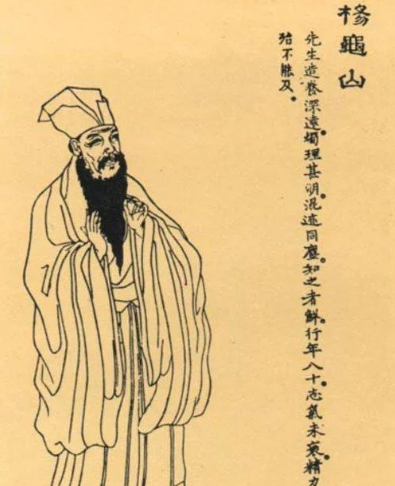 楊龜山
先生造養深遠。燭理甚明。混迹同塵。知之者鮮。行年八十。志氣未衰。精力
殆不能及。